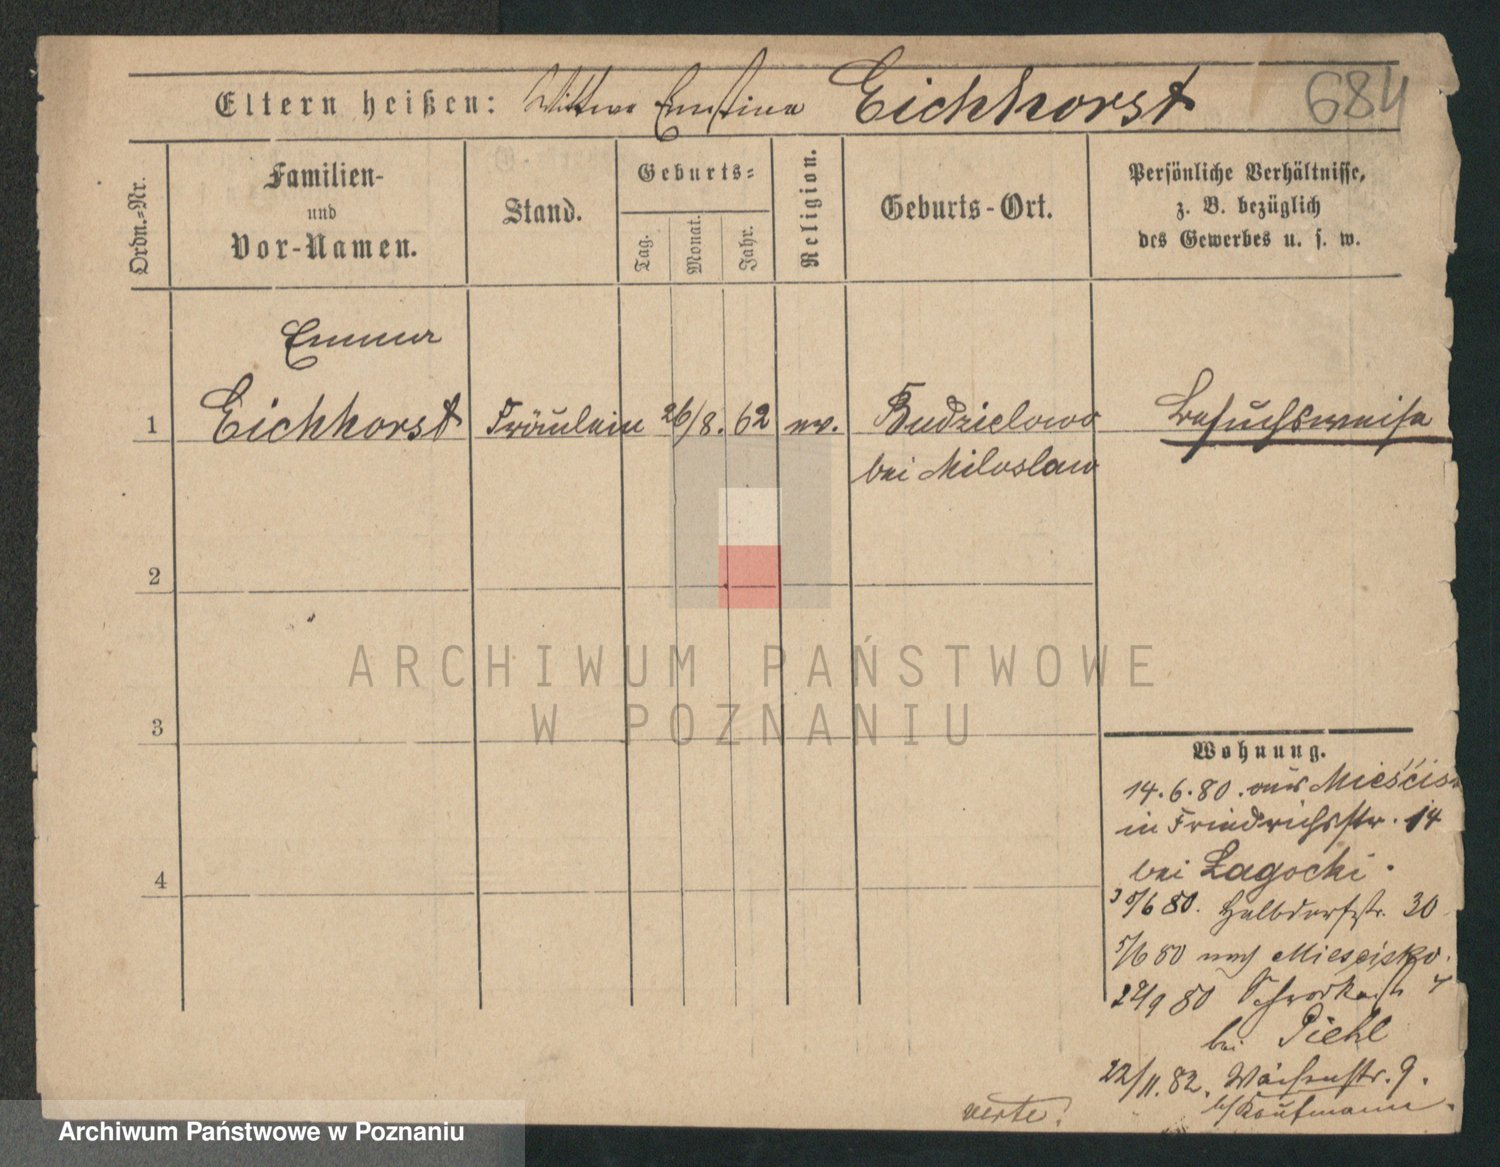 Eltern heißen: Wittwe Ernstina Eichhorst
684
Ordn.-Nr.
Familien-
und
Vor-Namen.
Stand.
Geburts-
Tag.
Monat.
Jahr.
Religion.
Geburts-Ort.
Persönliche Verhältnisse,
z. B. bezüglich
des Gewerbes u. s. w.
Emma
1 Eichhorst Fräulein 26/8. 62 ev. Budzielowo Besuchsweise
bei Miloslaw
2
3
4
ARCHIWUM PAŃSTWOWE
W POZNANIU
Wohnung.
14.6.80. aus Mieścisk
in Friedrichsstr. 14
bei Lagocki.
/6 80. Halbdorfstr. 30
5/6 80 nach Miescisko.
9 80
bei Piehl
22/11.82. Waisenstr. 9.
b/ Kaufmann.
verte!
Archiwum Państwowe w Poznaniu